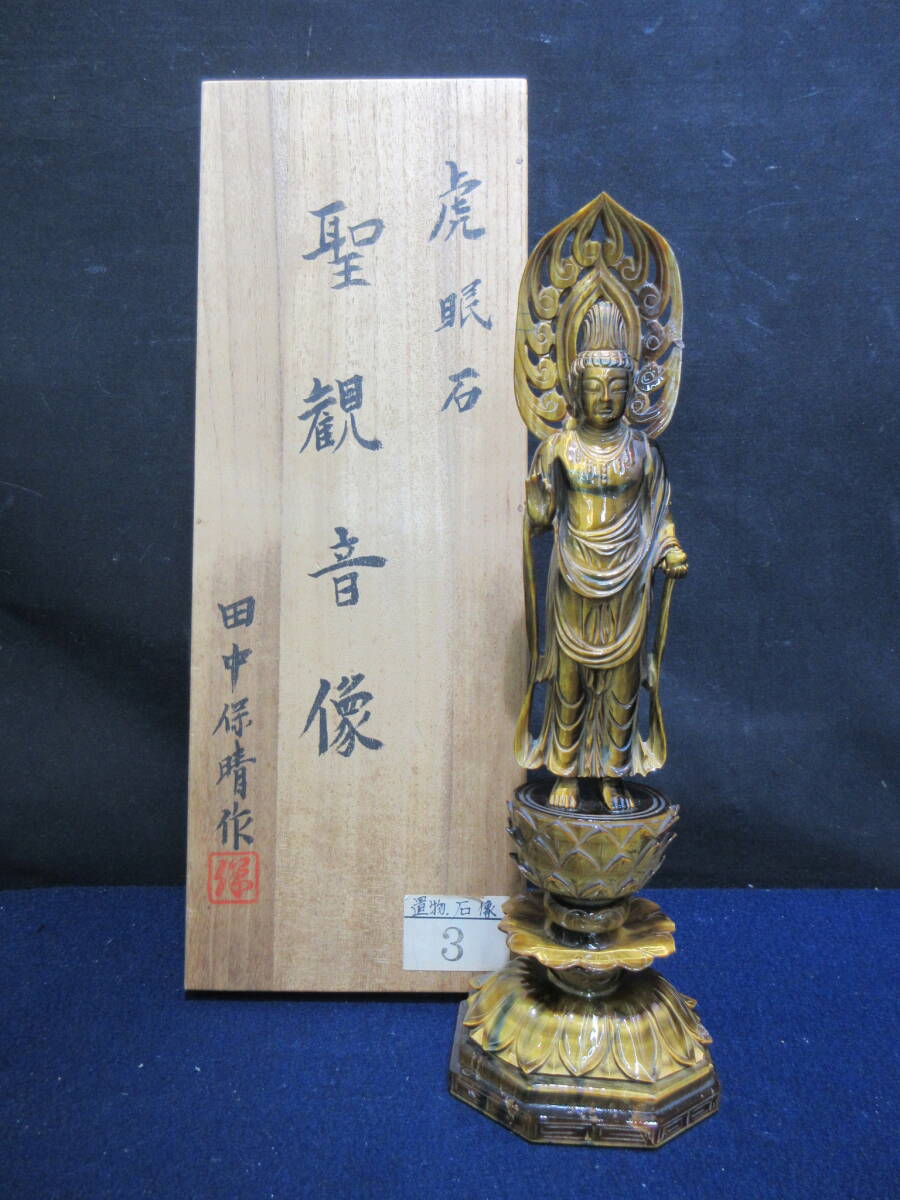 虎眼石
聖観音像
田中保晴作
置物.石像
3